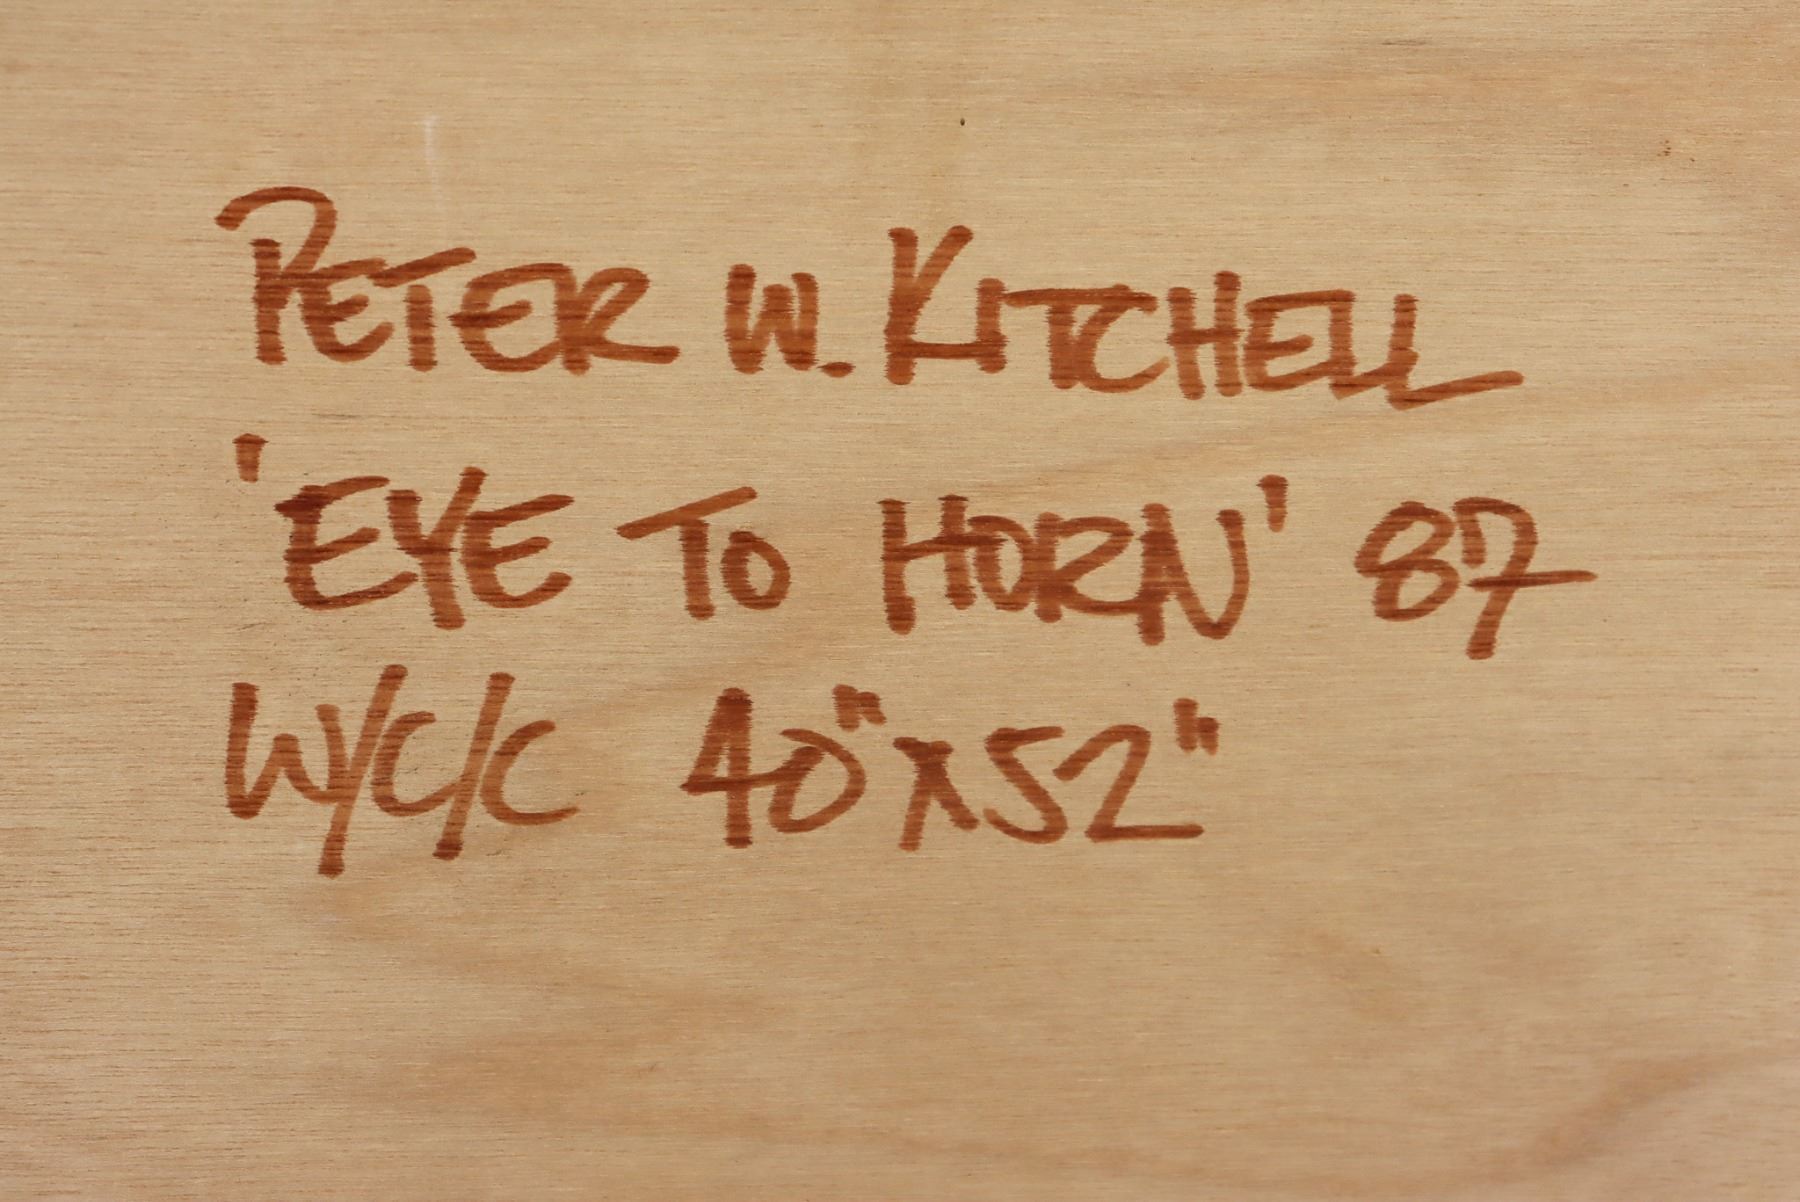 PETER W. KITCHELL
'EYE TO HORN' 87
W/C/C 40"X52"